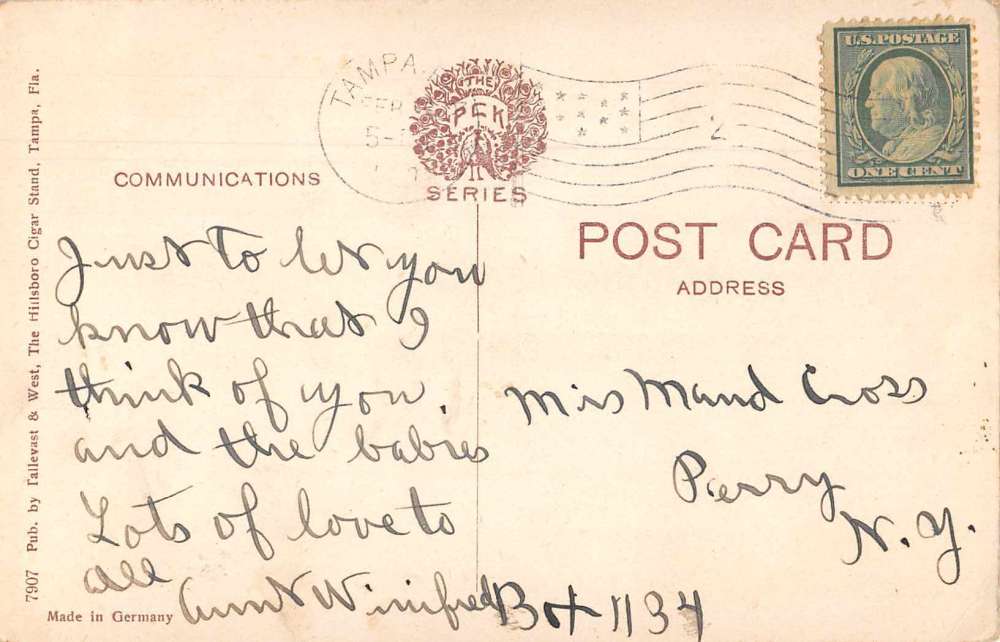 7907 Pub. by Tallevast & West, The Hillsboro Cigar Stand, Tampa, Fla.
TAMPA
FEB
5-
THE
PCK
SERIES
2
U.S. POSTAGE
ONE CENT
COMMUNICATIONS
POST CARD
ADDRESS
Just to let you
know that I
think of you
and the babies
Lots of love to
all
Aunt Winifred
Miss Maud Cross
Perry
N. Y.
Box 1134
Made in Germany